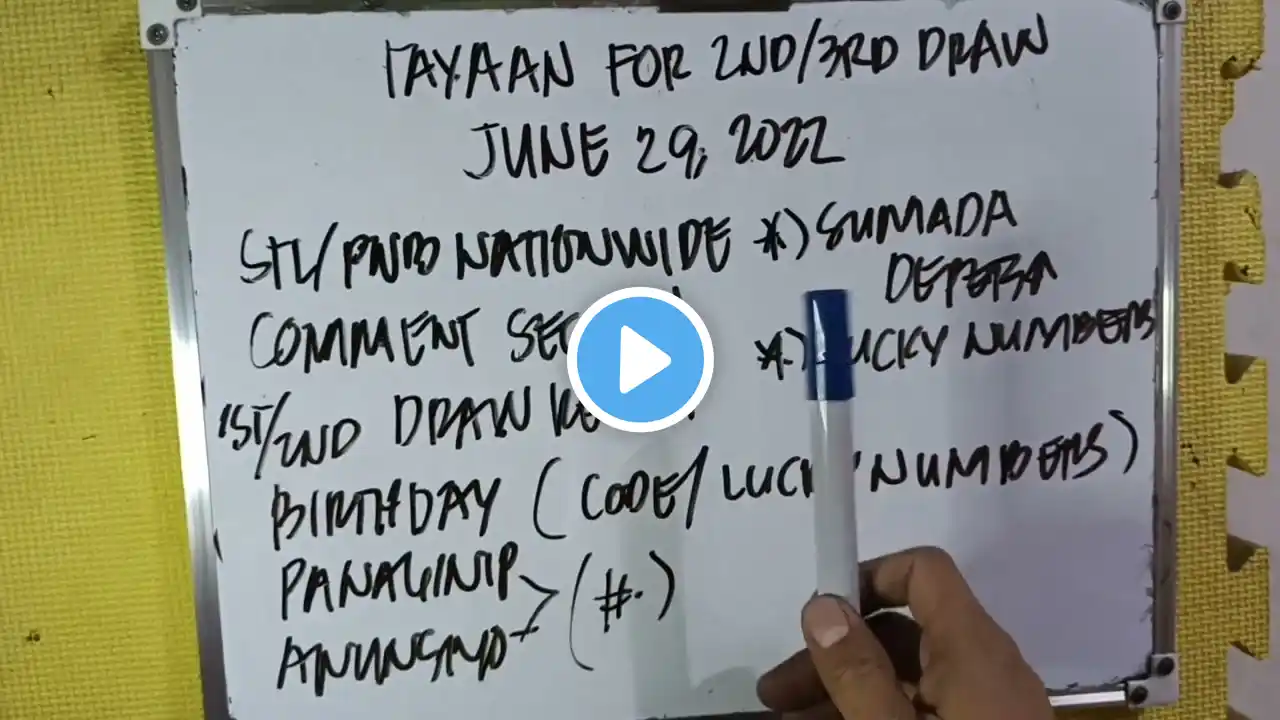 TAYAAN FOR 2ND/3RD DRAW
JUNE 29, 2022
STL/PNB NATIONWIDE *) SUMADA
DEPERA
COMMENT
*.) LUCKY NUMBERS
1ST/2ND DRAW
BIRTHDAY (CODE/LUCKY NUMBERS)
PANAGINIP
(#.)